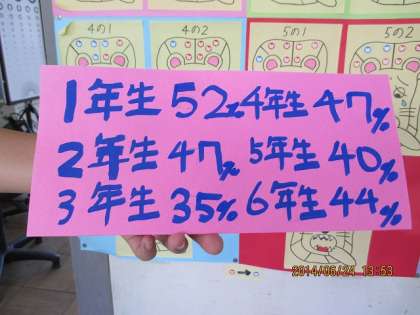 4の1
4の2
5の1
5の2
1年生 52% 4年生 47%
2年生 47% 5年生 40%
3年生 35% 6年生 44%
2014/06/24 13:53